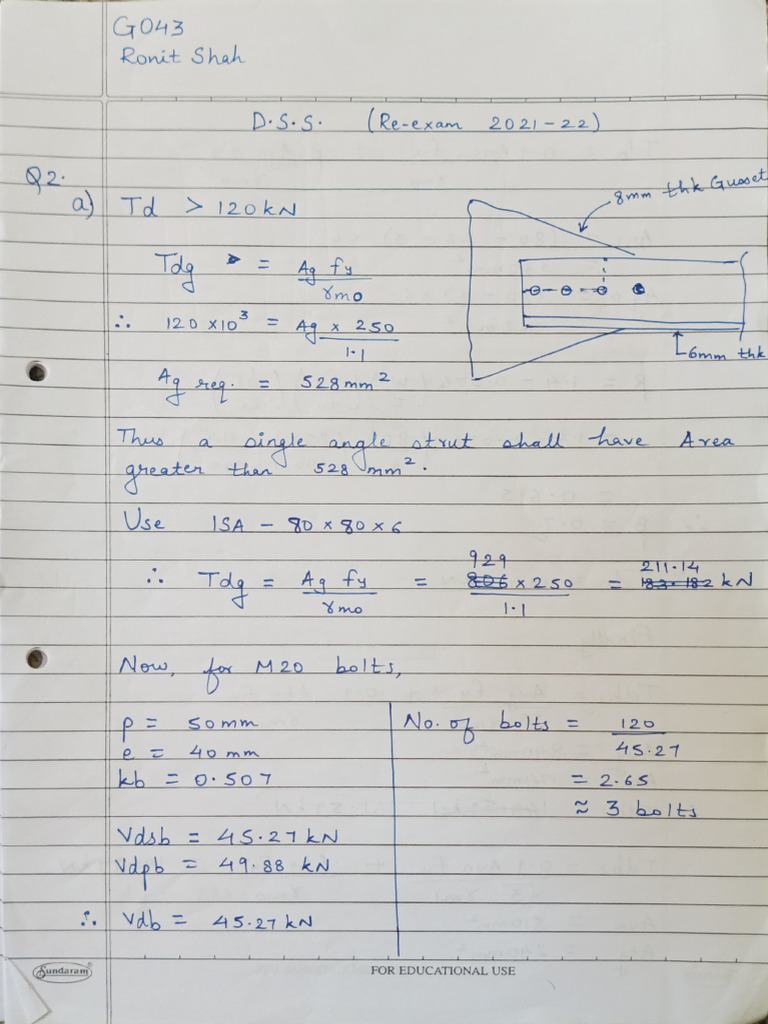 G043
Ronit Shah
D.S.S. (Re-exam 2021-22)
Q2.
a) Td > 120kN
8mm thk Gusset
Tdg = Ag fy / γmo
∴ 120 × 10³ = Ag × 250 / 1.1
6mm thk
Ag req. = 528mm²
Thus a single angle strut shall have Area
greater than 528 mm².
Use ISA - 80 × 80 × 6
∴ Tdg = Ag fy / γmo = 929 × 250 / 1.1 = 211.14 kN
Now, for M20 bolts,
p = 50mm
e = 40 mm
kb = 0.507
Vdsb = 45.27 kN
Vdpb = 49.88 kN
∴ Vdb = 45.27 kN
No. of bolts = 120 / 45.27
= 2.65
≈ 3 bolts
Sundaram
FOR EDUCATIONAL USE